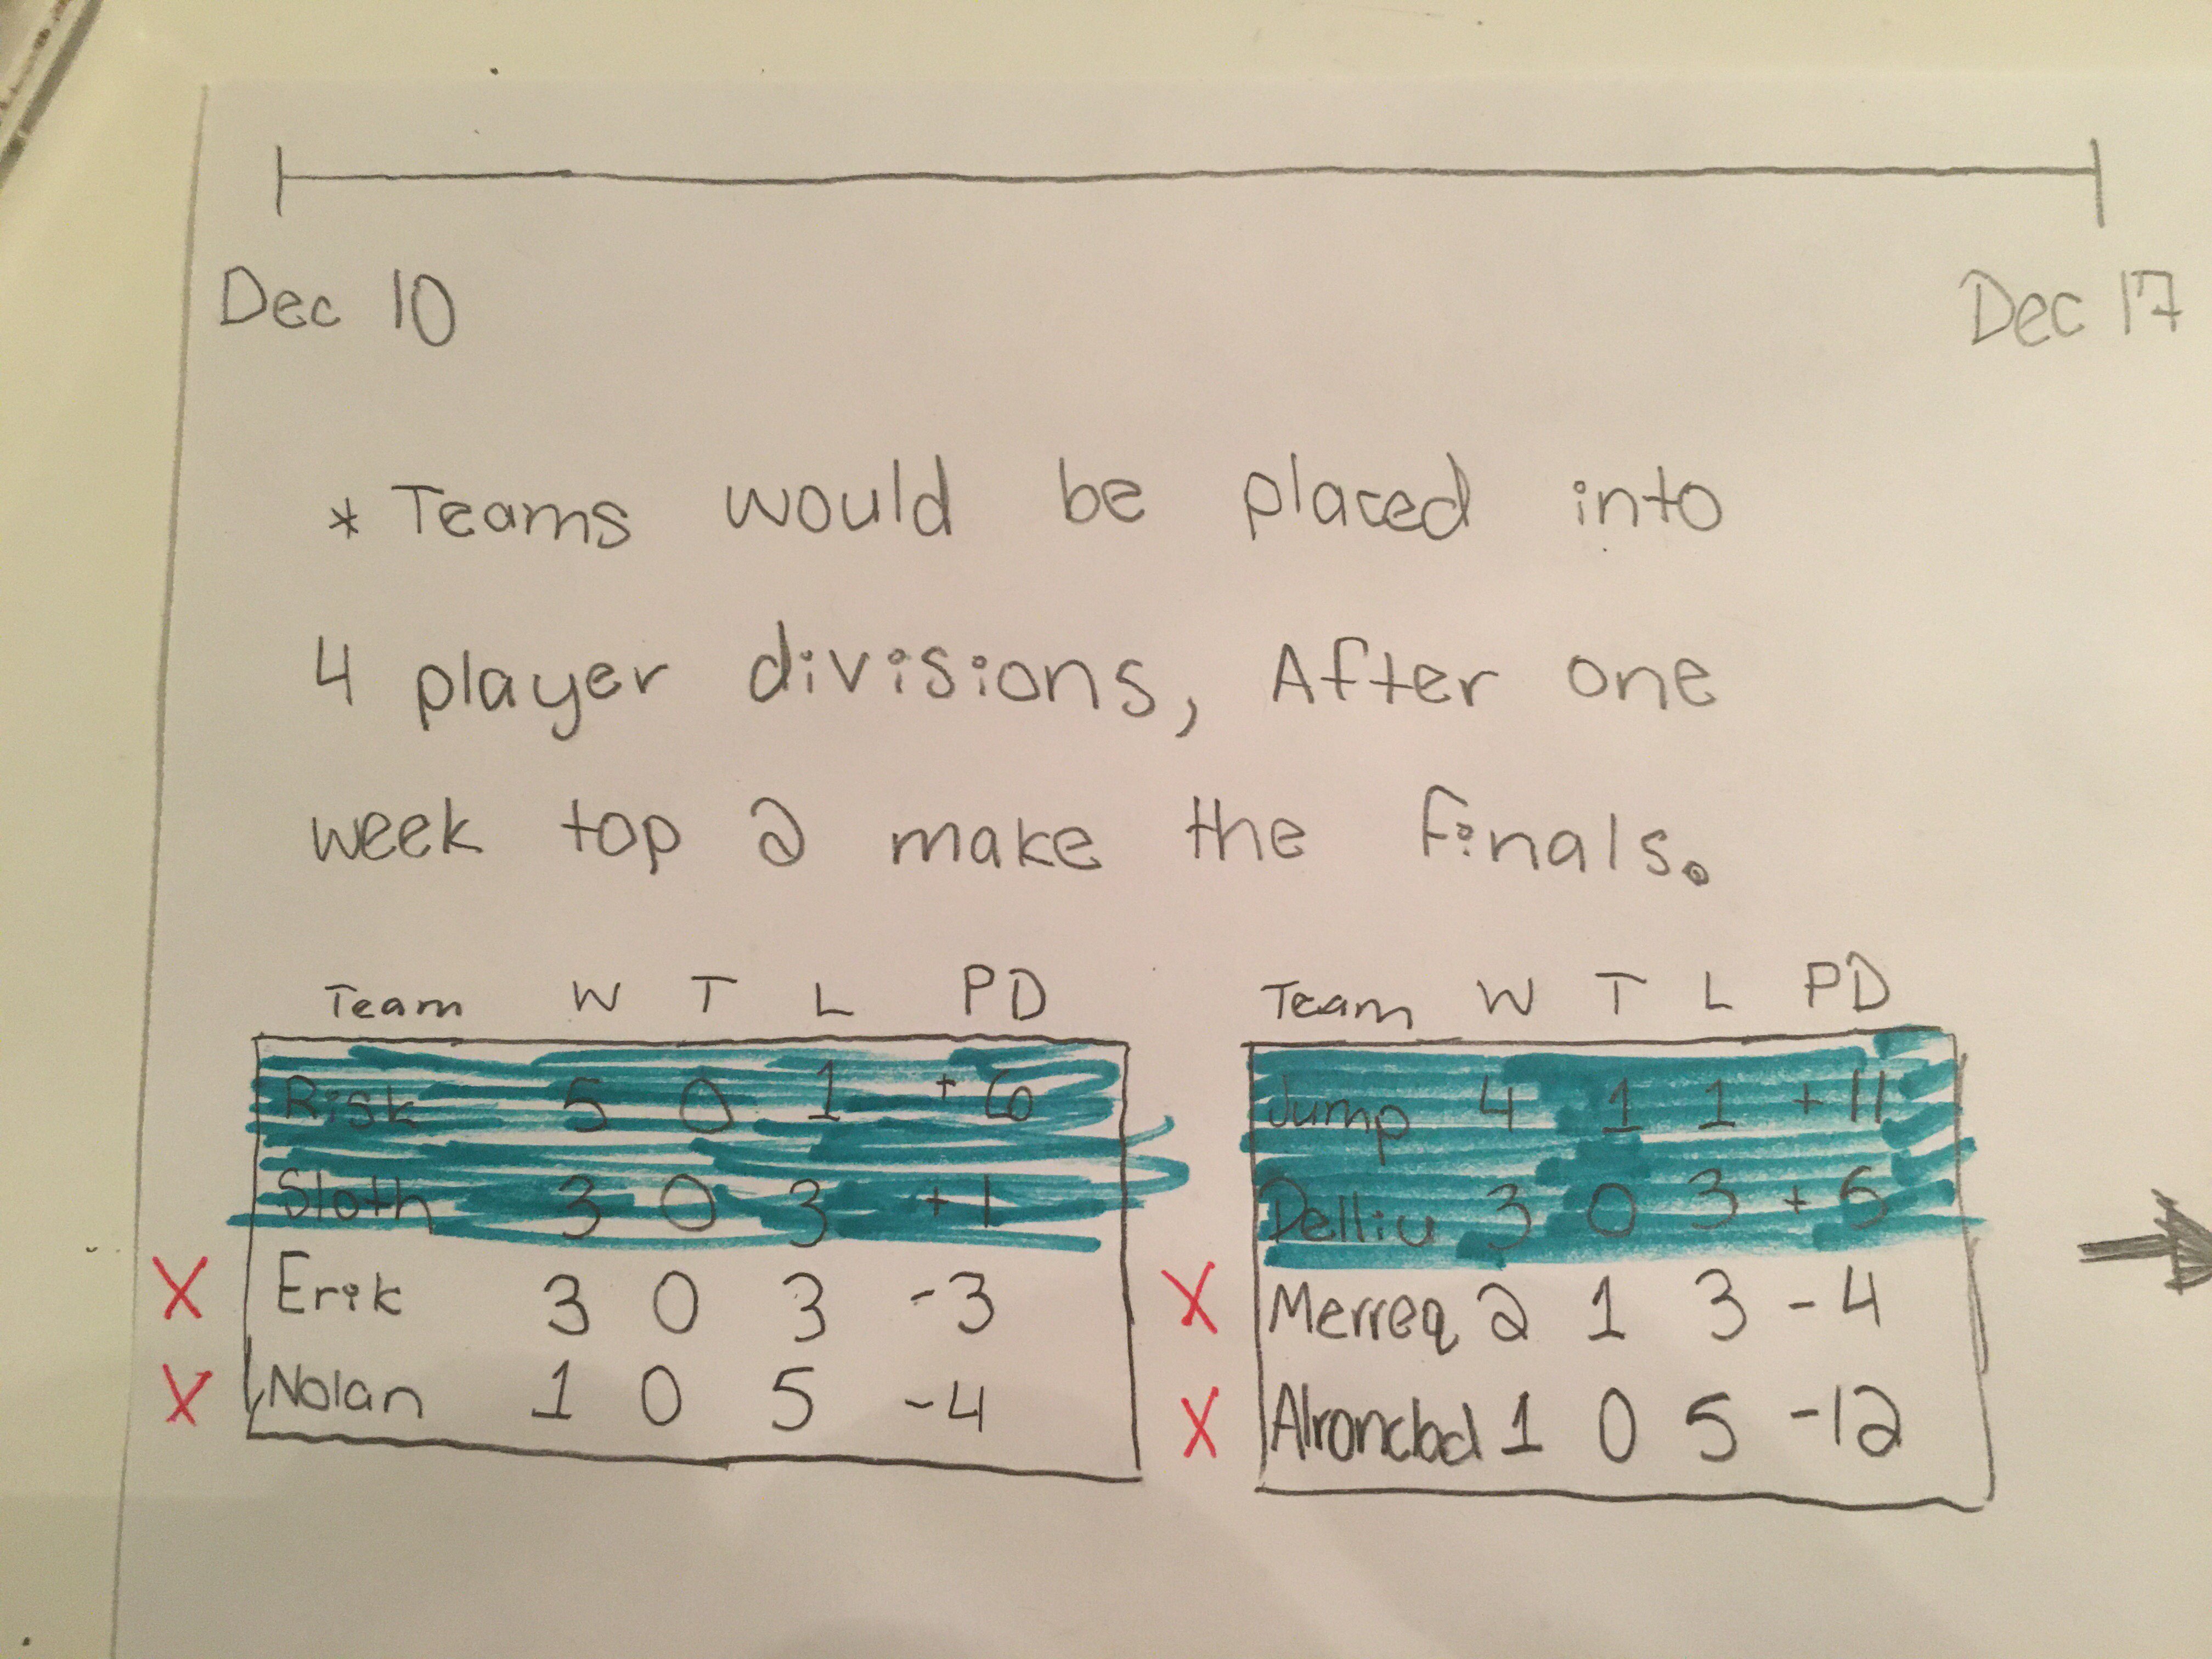 Dec 10 Dec 17
* Teams would be placed into
4 player divisions, After one
week top 2 make the finals.
Team W T L PD
Risk 5 0 1 +6
Sloth 3 0 3 +1
X Erik 3 0 3 -3
X Nolan 1 0 5 -4
Team W T L PD
Jump 4 1 1 +11
Delliu 3 0 3 +5
X Merreq 2 1 3 -4
X Alronclad 1 0 5 -12